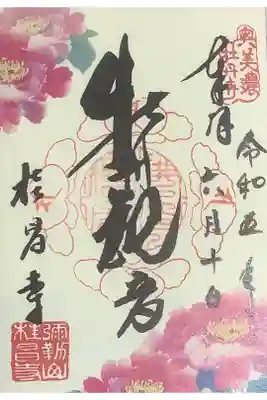 奥美濃
牡丹寺
令和五年
六月十日
奉拝
牡丹観音
桂昌寺
彌勒山
桂昌寺